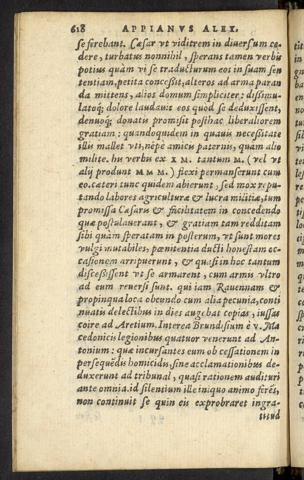 618 APPIANVS ALEX.
se ferebant. Cæsar vt vidit rem in diuersum ce-
dere, turbatus nonnihil, sperans tamen verbis
potius quàm vi se traducturum eos in suam sen
tentiam, petita concessit, alteros ad arma paran
da mittens, alios domum simpliciter: dissimu-
latoq; dolore laudauit eos quòd se deduxissent,
denuoq; donatis promisit posthac liberaliorem
gratiam: quandoquidem in quauis necessitate
illis mallet vti, népe amicis paternis, quàm alio
milite. his verbis ex X M. tantum M. (vel vt
alij produnt M M M) flexi permanserunt cum
eo. cæteri tunc quidem abierunt, sed mox repu-
tando labores agriculturæ & lucra militiæ, tum
promissa Cæsaris & facilitatem in concedendo
quæ postulauerant, & gratiam tam redditam
sibi quàm speratam in posterum, vt sunt mores
vulgi mutabiles, pœnitentia ducti honestam oc-
casionem arripuerunt, & quasi in hoc tantum
discessissent vt se armarent, cum armis vltro
ad eum reuersi sunt. qui iam Rauennam &
propinqua loca obeundo cum alia pecunia, conti
nuatis delectibus in dies augebat copias, iussas
coire ad Aretium. Interea Brundisium è V. Ma
cedonicis legionibus quatuor venerunt ad An-
tonium: quæ incusantes eum ob cessationem in
persequédis homicidis, sine acclamationibus de-
duxerunt ad tribunal, quasi rationem audituri
ante omnia. id silentium ille iniquo animo feres,
non continuit se quin eis exprobraret ingra-
titud